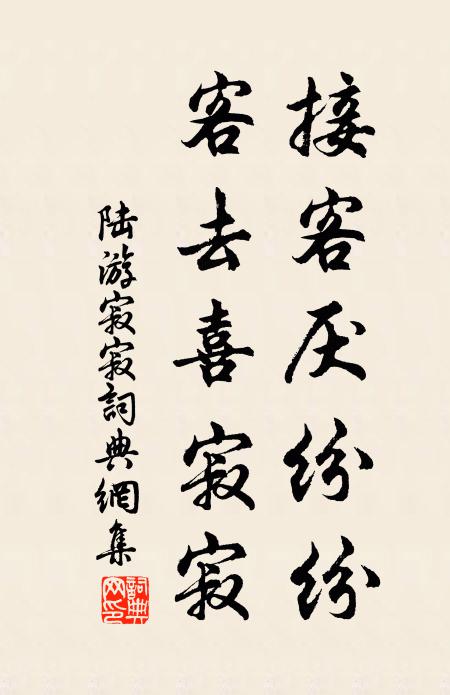 接客厌纷纷
客去喜寂寂
陆游寂寂詞典網集
詞典網印